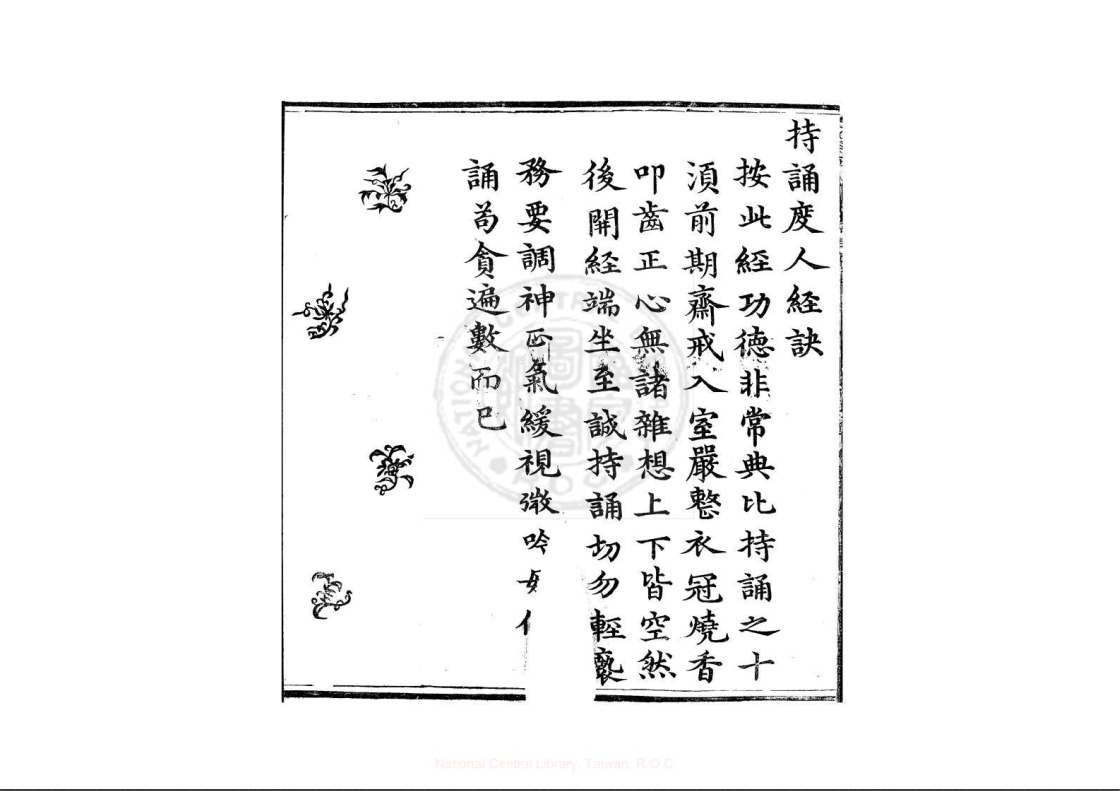 持誦度人経訣
按此經功德非常典比持誦之十
湏前期齋戒入室嚴整衣冠燒香
叩齒正心無諸雜想上下皆空然
後開経端坐至誠持誦切勿輕褻
務要調神正氣緩視微吟
誦苟貪遍數而已
National Central Library, Taiwan, R.O.C.